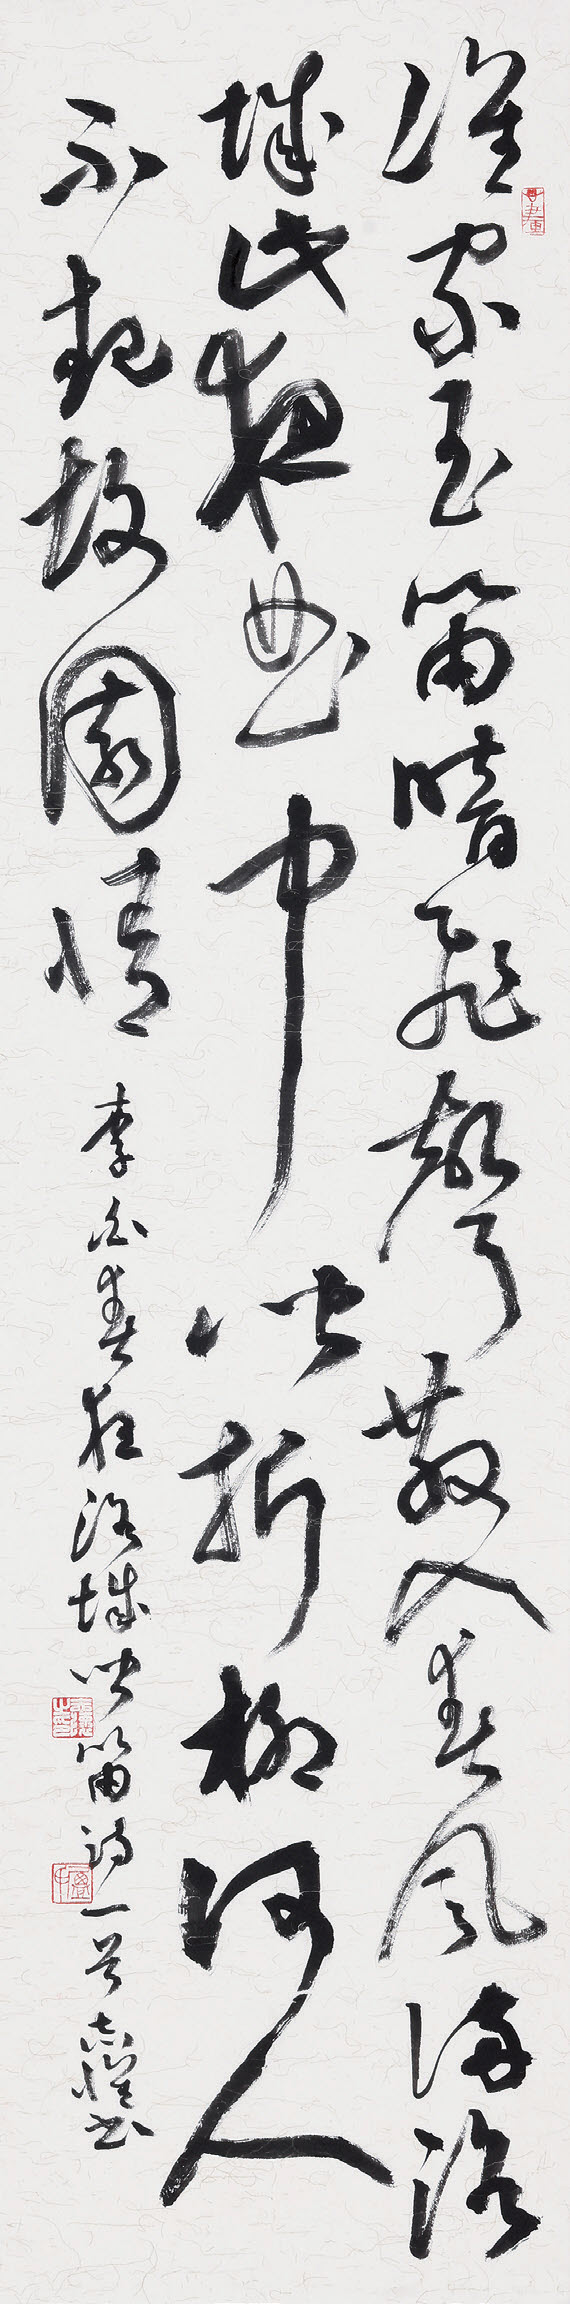 誰家玉笛暗飛聲散入春風滿洛
城此夜曲中聞折柳何人
不起故園情
李白春洛城聞笛詩一首書